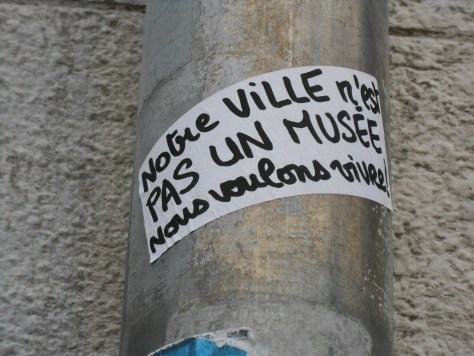 Notre ViLLE n'est
PAS UN MUSÉE
Nous voulons vivre!